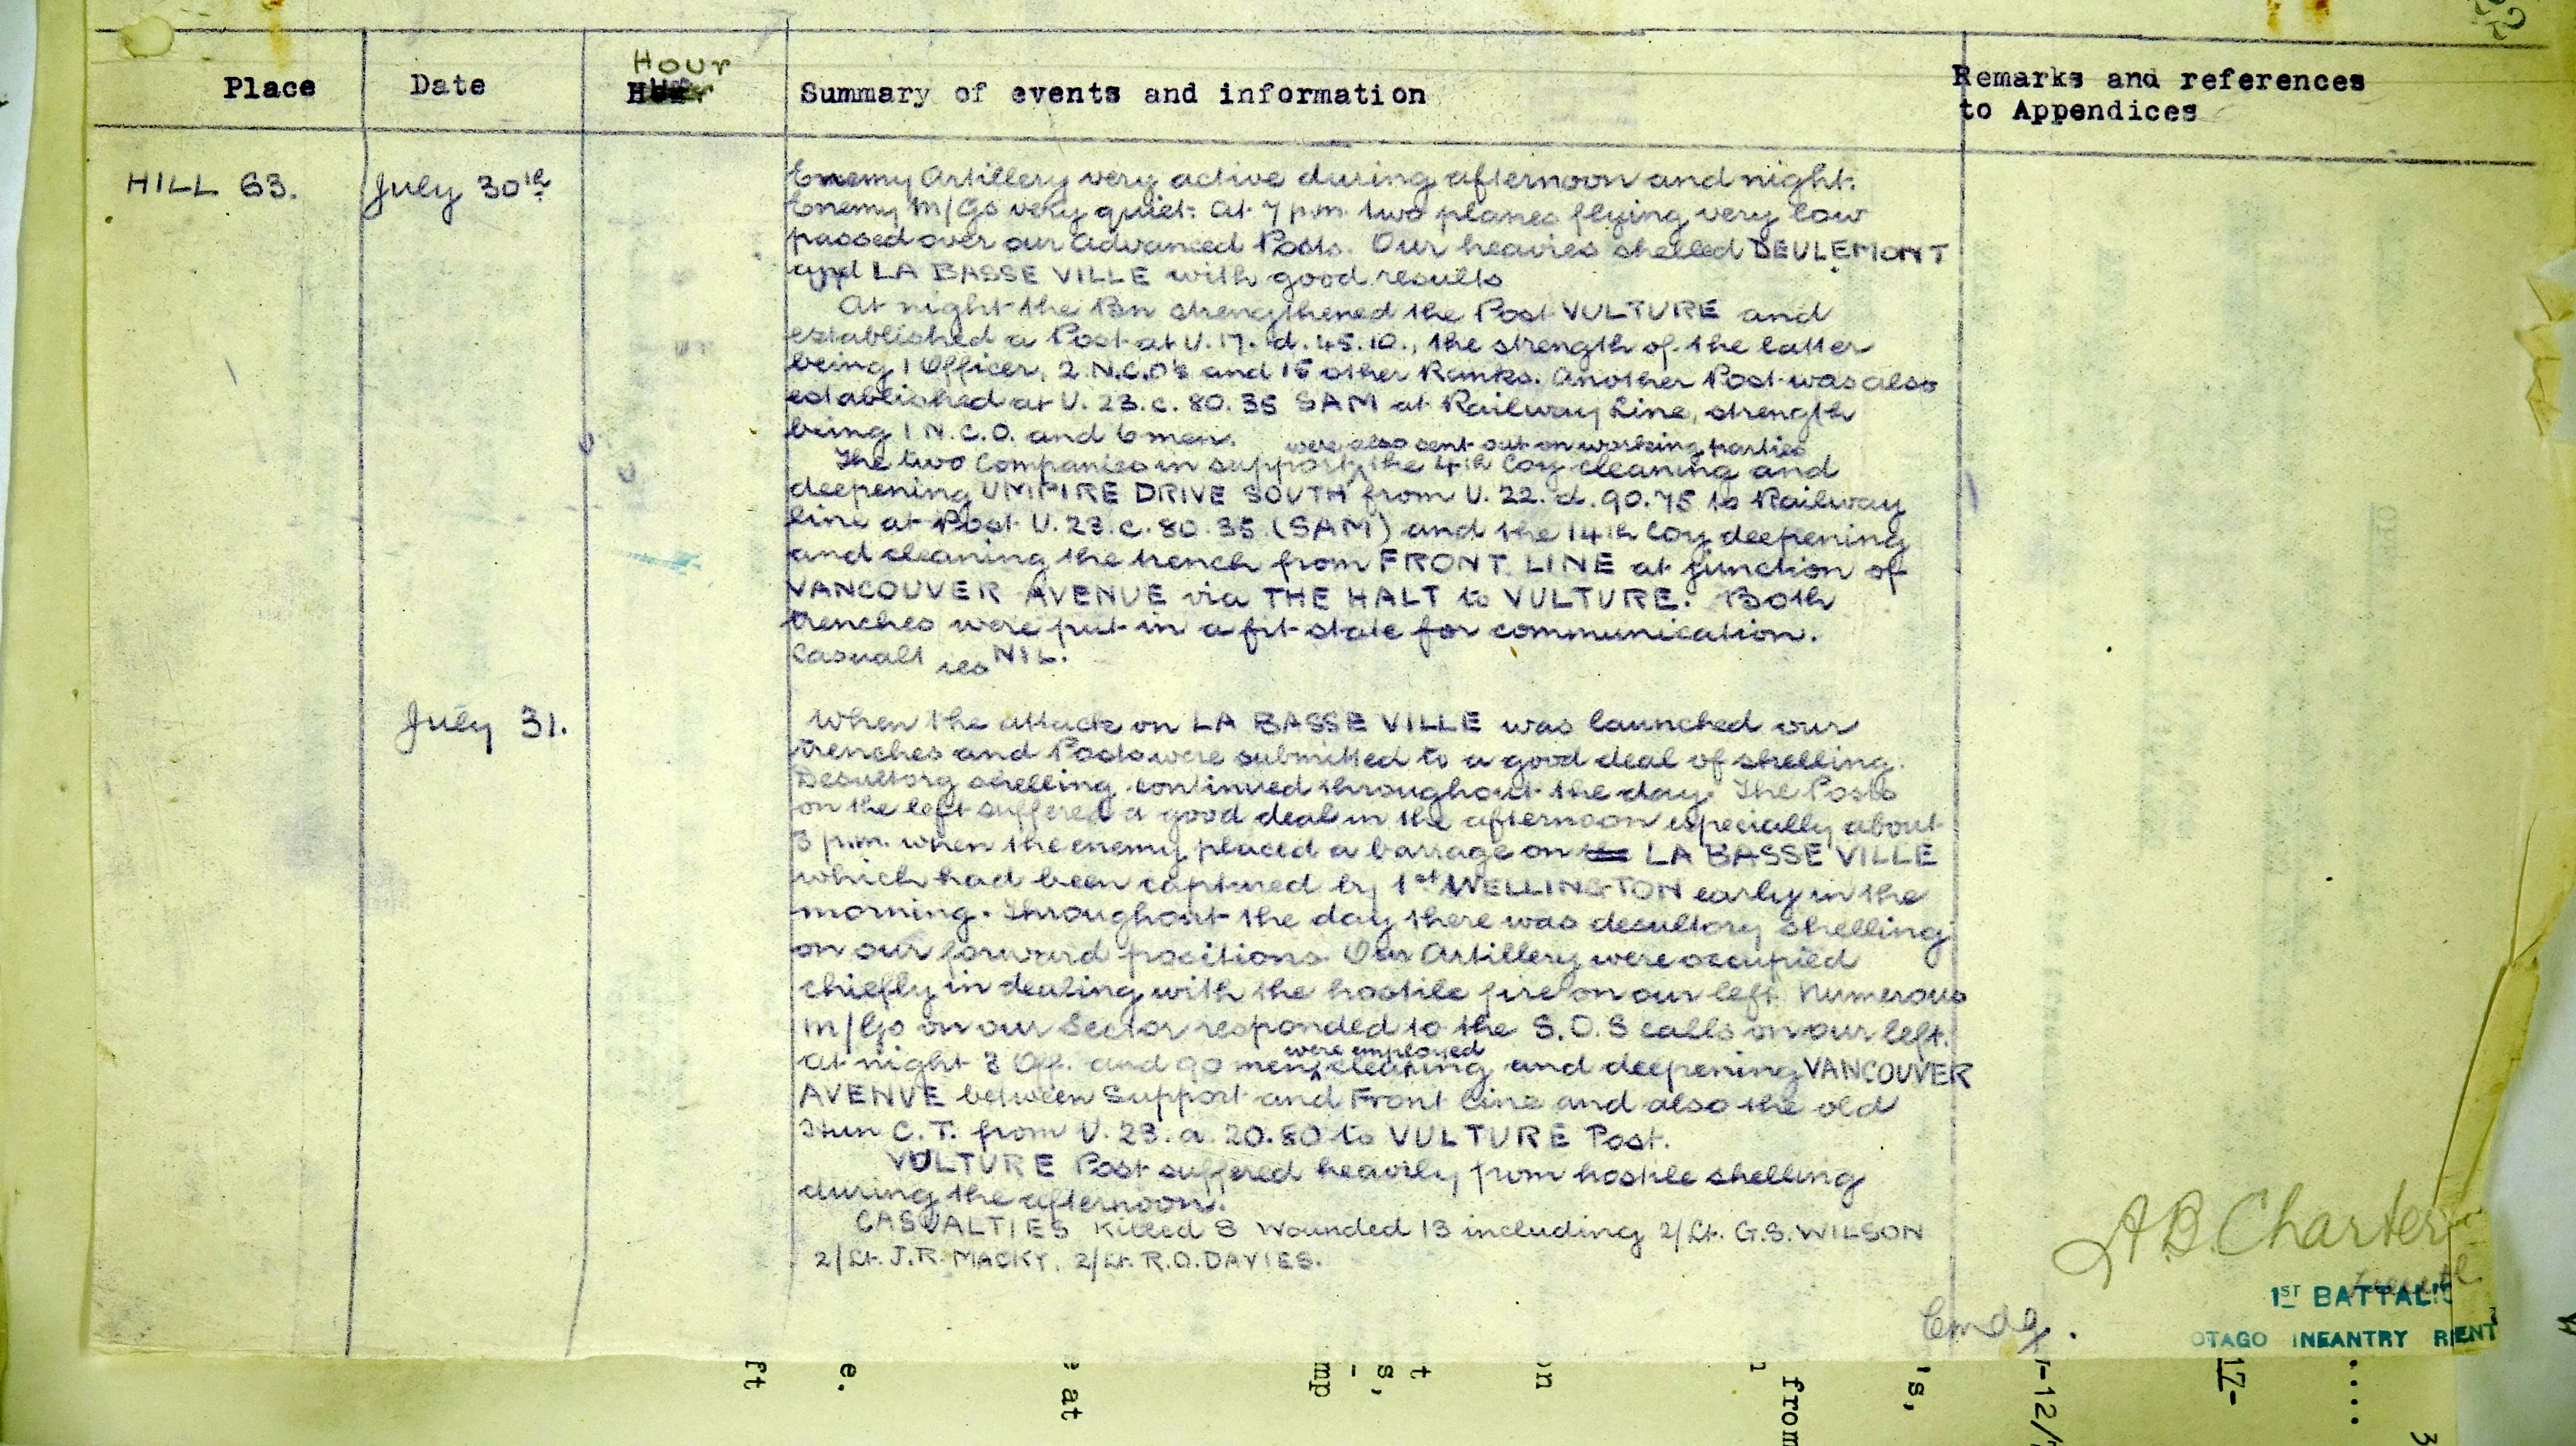 Place Date Hour Summary of events and information Remarks and references
to Appendices
HILL 63. July 30th Enemy Artillery very active during afternoon and night.
Enemy M/Gs very quiet. At 7 p.m. two planes flying very low
passed over our advanced Posts. Our heavies shelled DEULEMONT
and LA BASSE VILLE with good results
At night the Bn strengthened the Post VULTURE and
established a Post at U.17.d.45.10., the strength of the latter
being 1 Officer, 2 N.C.O's and 15 other Ranks. Another Post was also
established at U.23.c.80.35 SAM at Railway Line, strength
being 1 N.C.O. and 6 men.
were also sent out on working parties
The two Companies in support, the 4th Coy cleaning and
deepening UMPIRE DRIVE SOUTH from U.22.d.90.75 to Railway
line at Post U.23.c.80.35 (SAM) and the 14th Coy deepening
and cleaning the trench from FRONT LINE at junction of
VANCOUVER AVENUE via THE HALT to VULTURE. Both
trenches were put in a fit state for communication.
Casualties NIL.
July 31. When the attack on LA BASSE VILLE was launched our
trenches and Posts were submitted to a good deal of shelling.
Desultory shelling continued throughout the day. The Posts
on the left suffered a good deal in the afternoon especially about
3 p.m. when the enemy placed a barrage on the LA BASSE VILLE
which had been captured by 1st WELLINGTON early in the
morning. Throughout the day there was desultory shelling
on our forward positions. Our Artillery were occupied
chiefly in dealing with the hostile fire on our left. Numerous
M/Gs on our Sector responded to the S.O.S calls on our left.
were employed
At night 3 Off. and 90 men, cleaning and deepening VANCOUVER
AVENUE between Support and Front Line and also the old
Hun C.T. from U.23.a.20.80 to VULTURE Post.
VULTURE Post suffered heavily from hostile shelling
during the afternoon.
CASUALTIES Killed 8 Wounded 13 including 2/Lt. G.S. WILSON
2/Lt. J.R. MACKY. 2/Lt. R.O. DAVIES.
A B Charters
Cmdg.
1ST BATTAL'
OTAGO INFANTRY R ENT
ft
e.
at
mp
s,
t
on
from
's,
-12/
17-
....
3